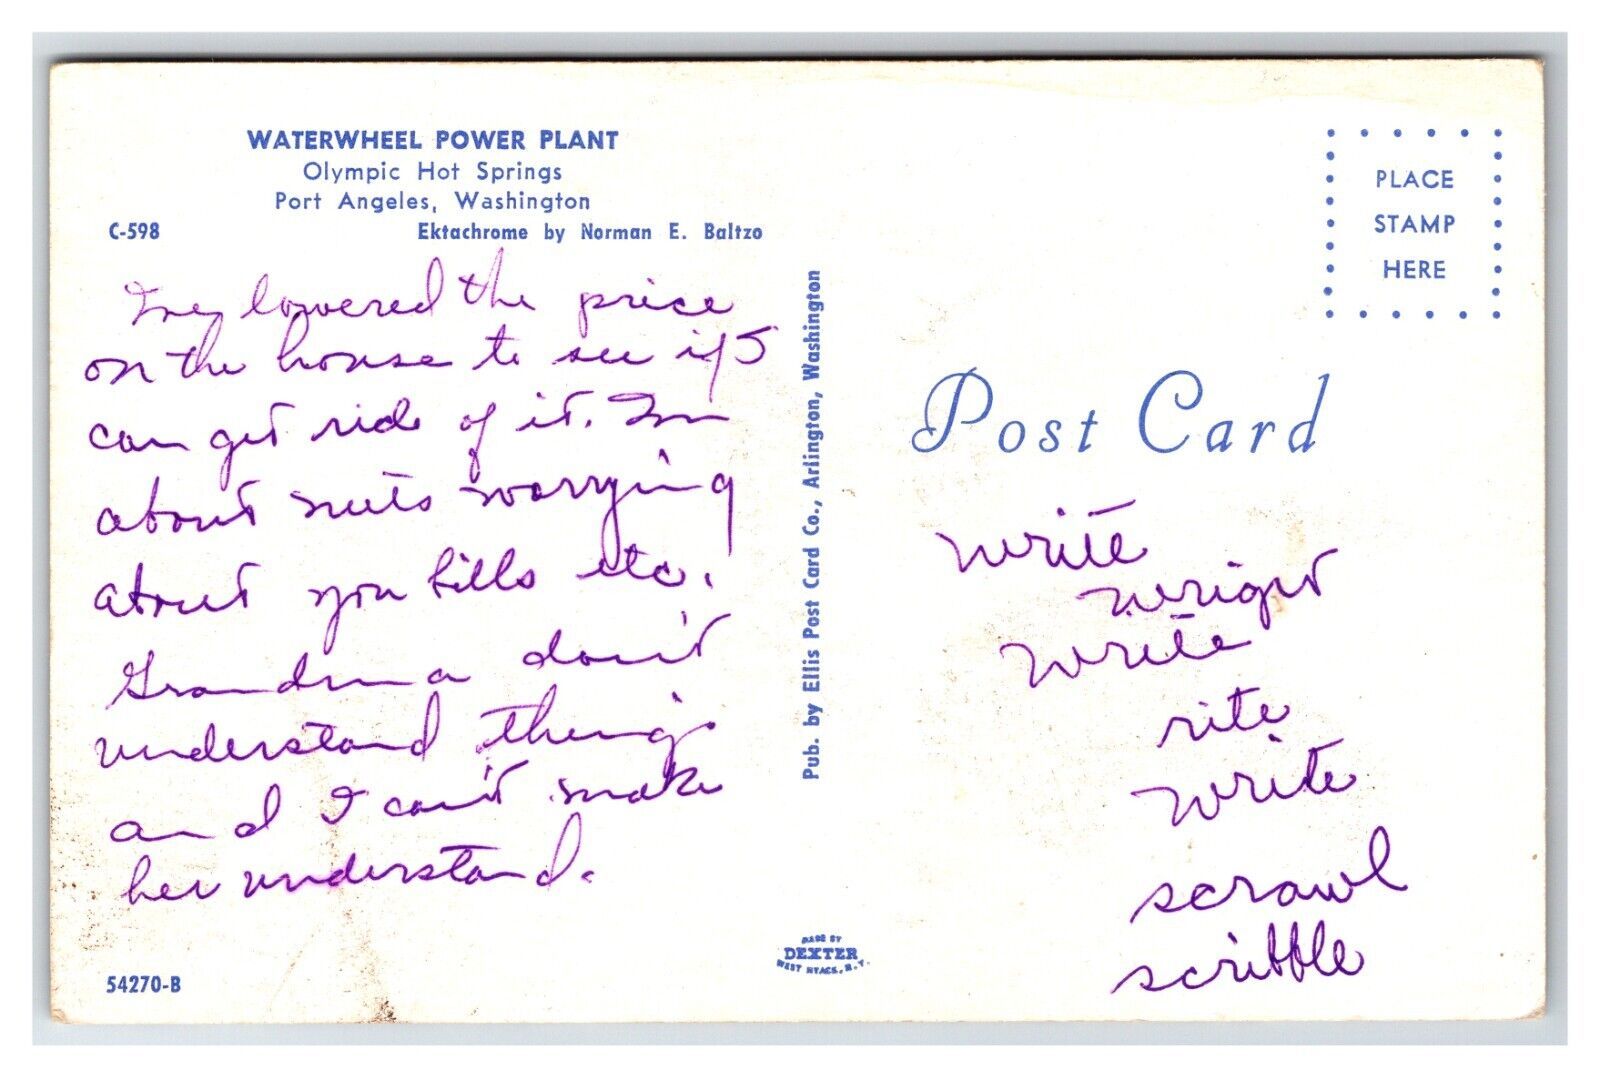 WATERWHEEL POWER PLANT
Olympic Hot Springs
Port Angeles, Washington
C-598
Ektachrome by Norman E. Baltzo
I've lowered the price
on the house to see if
can get ride of it. I'm
about nuts worrying
about you bills etc.
Grandma don't
understand things
and I can't make
her understand.
54270-B
Pub. by Ellis Post Card Co., Arlington, Washington
MADE BY
DEXTER
WEST NYACK, N.Y.
PLACE
STAMP
HERE
Post Card
write
wright
write
rite
write
scrawl
scribble